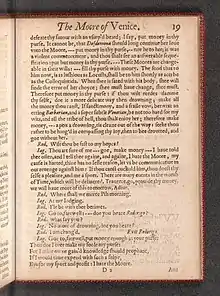 The Moore of Venice. 19
defeate thy fauour with an vsurp'd beard; I say, put money in thy
purse. It cannot be, that Desdemona should long continue her loue
vnto the Moore, — put money in thy purse, — nor he to her; it was
a violent commencement, and thou shalt see an answerable sequestration:
put but money in thy purse. — These Moores are changeable
in their wills: — fill thy purse with money. The food that to
him now, is as lushious as Locusts, shall be to him shortly as acerbe as
the Coloquintida. When shee is sated with his body, shee will
finde the error of her choyce; shee must haue change, shee must.
Therefore put money in thy purse: if thou wilt needes damme
thy selfe, doe it a more delicate way then drowning; make all
the money thou canst, If sanctimony, and a fraile vow, betwixt an
erring Barbarian, and a super subtle Venetian, be not too hard for my
wits, and all the tribe of hell, thou shalt enioy her; therefore make
money, — a pox a drowning, tis cleane out of the way: seeke thou
rather to be hang'd in compassing thy ioy, then to be drowned, and
goe without her.
Rod. Wilt thou be fast to my hopes?
Iag. Thou art sure of me — goe, make money — I haue told
thee often, and I tell thee againe, and againe, I hate the Moore, my
cause is hearted, thine has no lesse reason, let vs be communicatiue in
our reuenge against him: If thou canst cuckold him, thou doest thy
selfe a pleasure, and me a sport. There are many euents in the wombe
of Time, which will be deliuered. Trauerse, goe, prouide thy money,
we will haue more of this to morrow, Adieu.
Rod. Where shall we meete i'th morning.
Iag. At my lodging.
Rod. I'le be with thee betimes.
Iag. Go to, farewell: — doe you heare Roderigo?
Rod. what say you?
Iag. No more of drowning, doe you heare?
Rod. I am chang'd. Exit Roderigo.
Iag. Goe to, farewell, put money enough in your purse:
Thus doe I euer make my foole my purse:
For I mine owne gain'd knowledge should prophane,
If I would time expend with such a snipe,
But for my sport and profit: I hate the Moore,
D 2 And